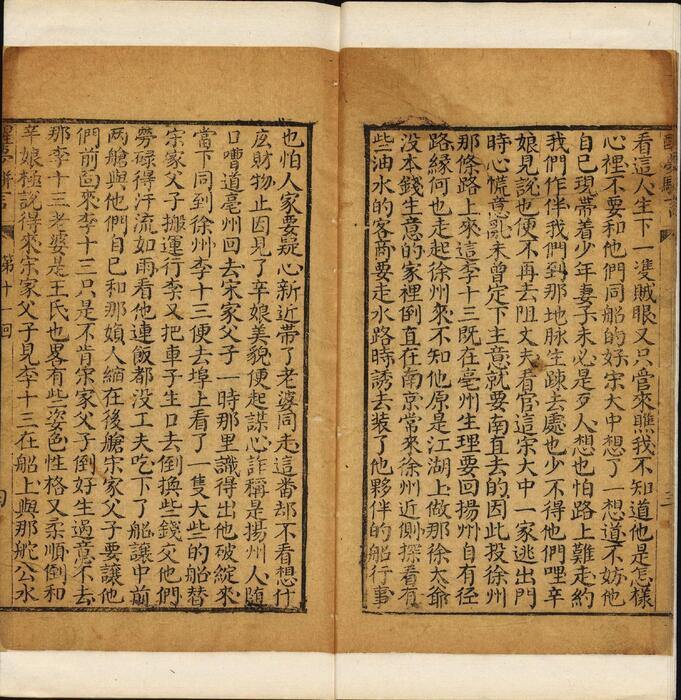 看這人生下一隻賊眼又只管來瞧我不知道他是怎樣
心裡不要和他們同船的好宋大中想了一想道不妨他
自己現帶着少年妻子未必是歹人想也怕路上難走約
我們作伴我們到那地脉生踈去處也少不得他們哩辛
娘見說也便不再去阻丈夫看官這宋大中一家逃出門
時心慌意亂未曾定下主意就要南直去的因此投徐州
那條路上來這李十三既在亳州生理要回揚州自有徑
路緣何也走起徐州來不知他原是江湖上做那徐大爺
没本錢生意的家裡倒直在南京常來徐州近側探看有
些油水的客商要走水路時誘去裝了他夥伴的船行事
也怕人家要疑心新近帶了老婆同走這番却不看想什
庅財物止因見了辛娘美貌便起謀心詐稱是揚州人随
口嘈道亳州回去宋家父子一時那里識得出他破綻來
當下同到徐州李十三便去埠上看了一隻大些的船替
宋家父子搬運行李又把車子生口去倒換些錢交他們
勞碌得汗流如雨看他連飯都没工夫吃下了船讓中前
两艙與他們自己和那媍人縮在後艙宋家父子要讓他
們前面來李十三只是不肯宋家父子倒好生過意不去
那李十三老婆是王氏也畧有些姿色性格又柔順倒和
辛娘極說得來宋家父子見李十三在船上與那舵公水
第十一回